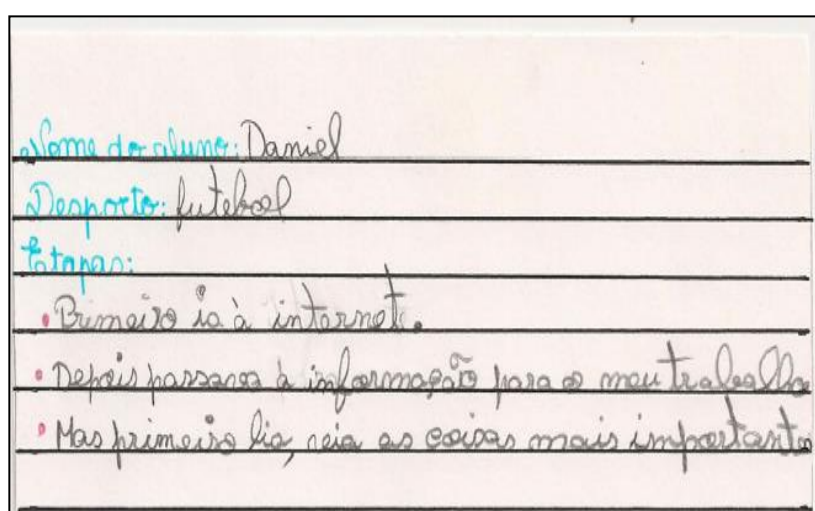 Nome do aluno: Daniel
Desporto: futebol
Etapas:
• Primeiro ia à internet.
• Depois passava à informação para o meu trabalho
• Mas primeiro lia, via as coisas mais importantes